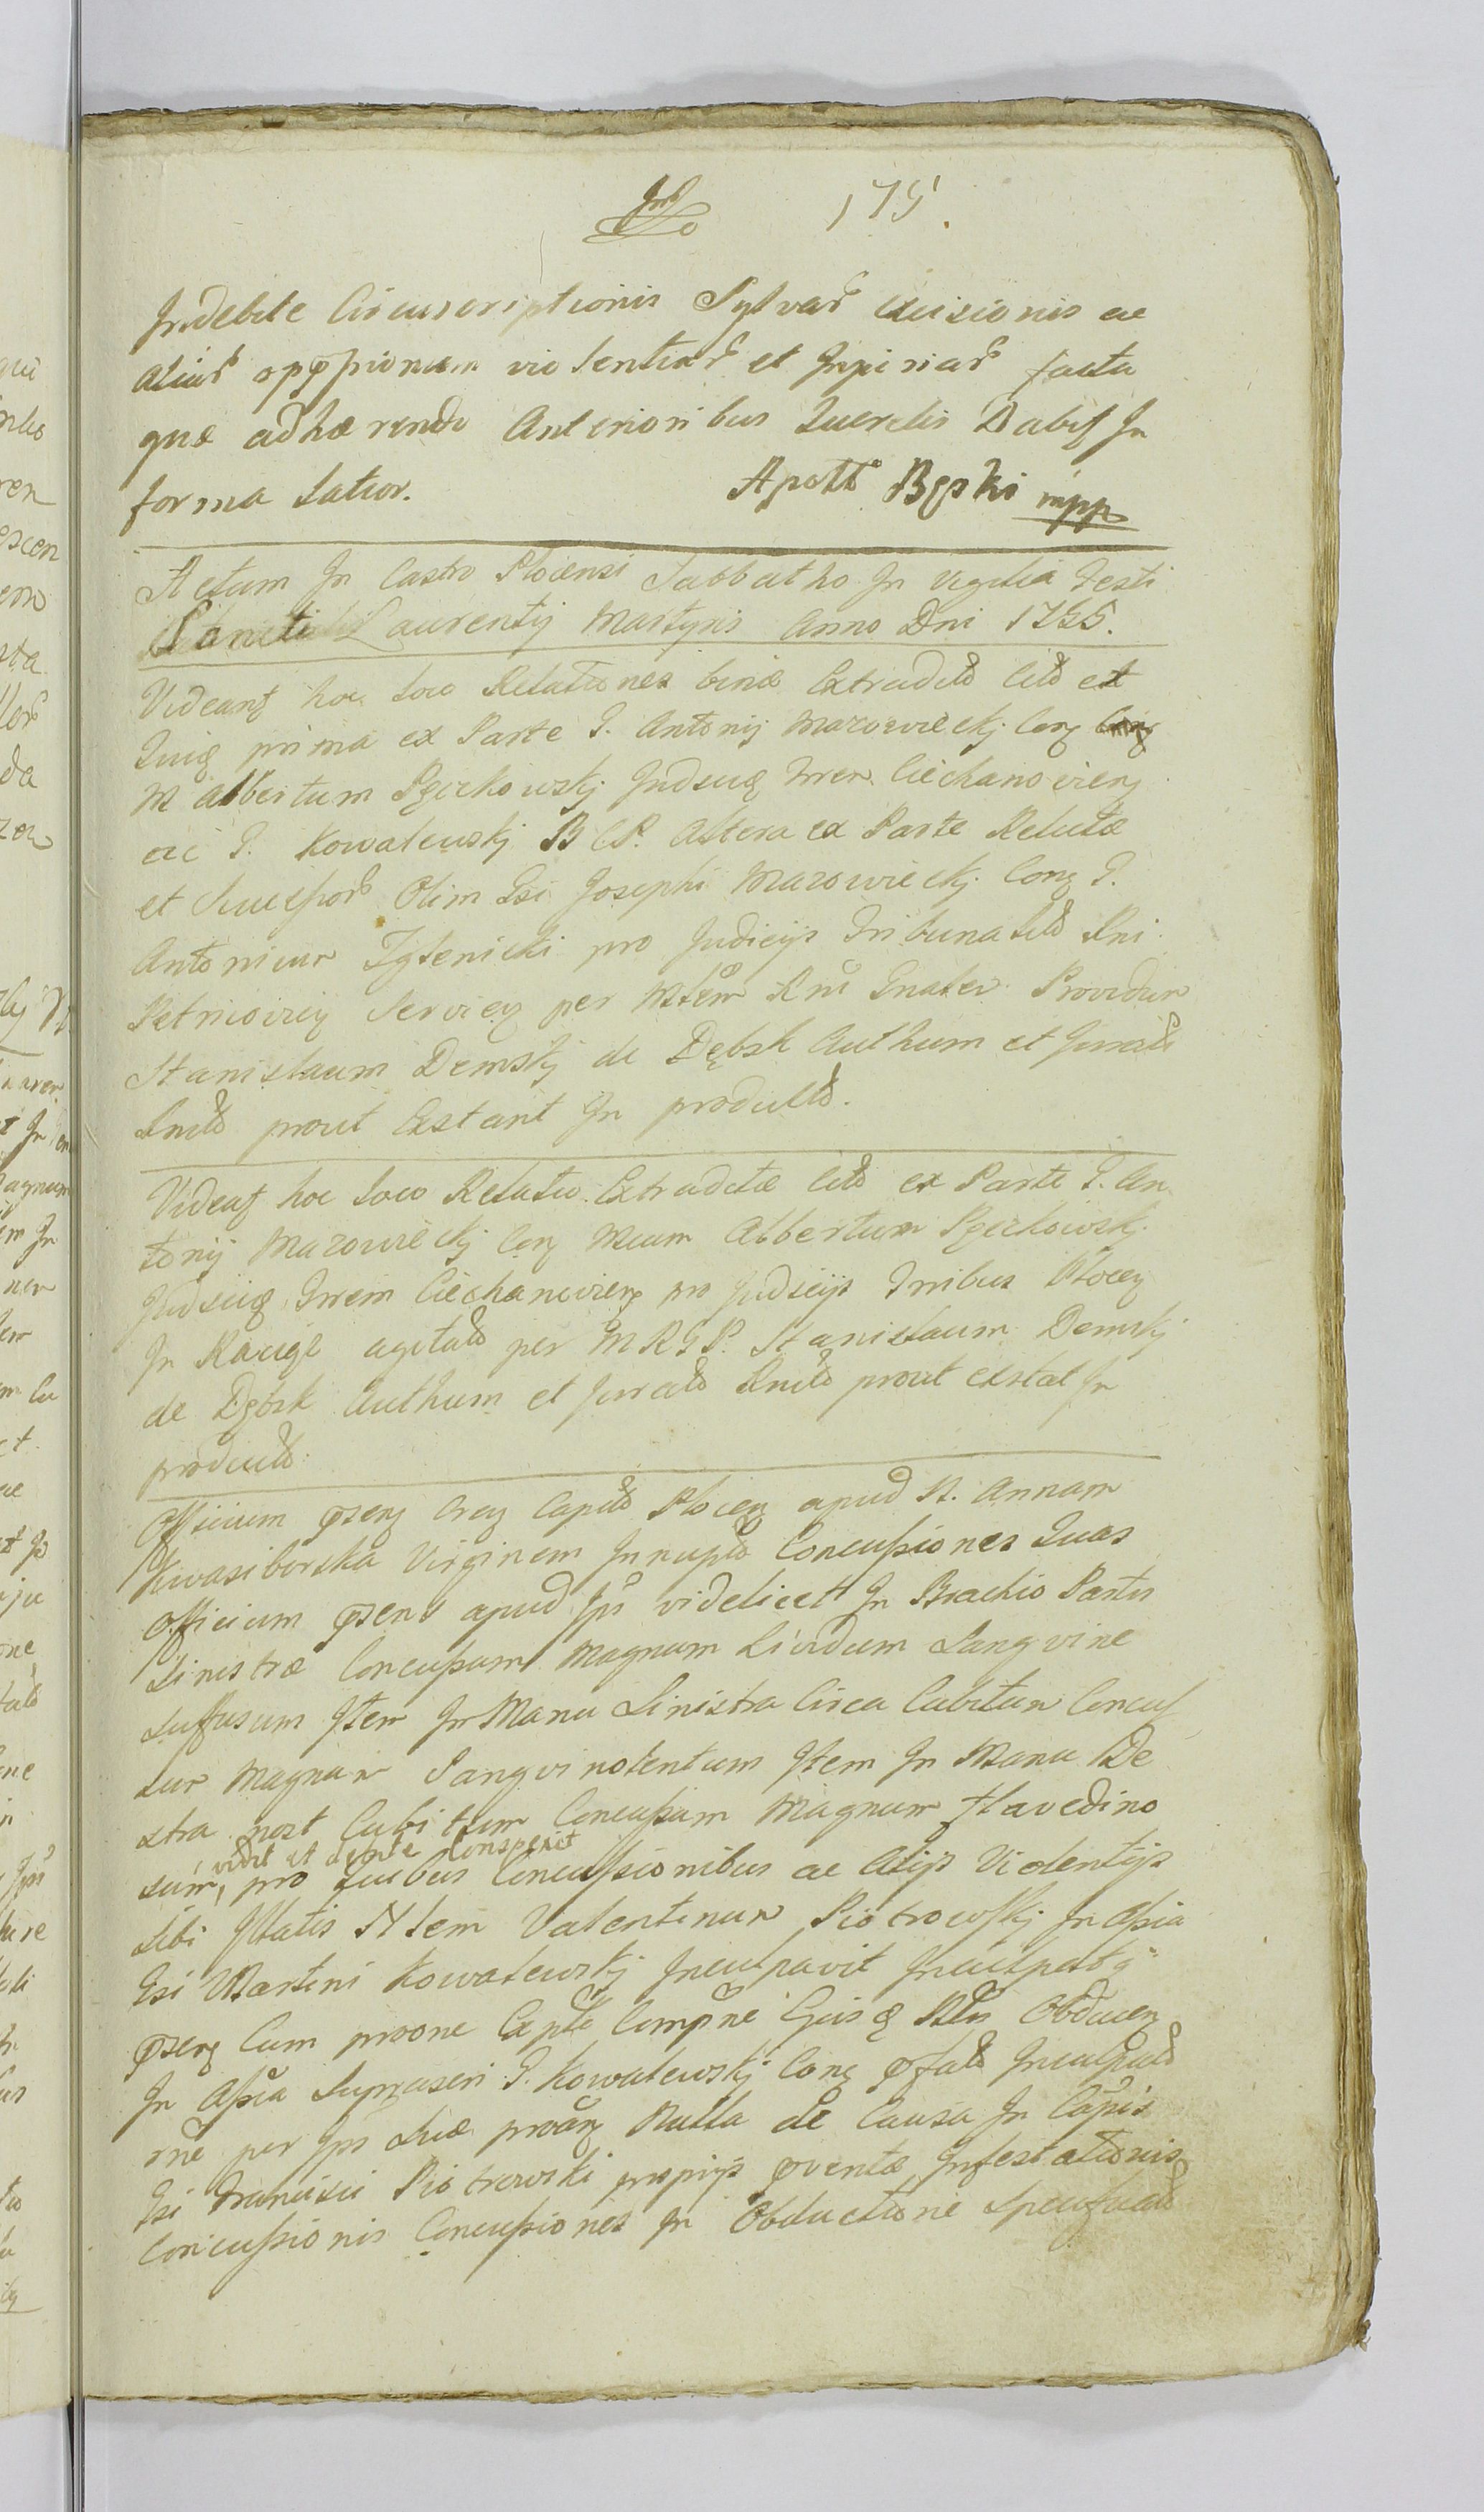 175.
Indebite Circumscriptionis Sylvar Excisionis ac
aliar opp̄ssionum violentiar et Injuriar facta
quæ adhærendo Anterioribus Querelis Dabit In
forma Latior. Apoll Bęski mpp
Actum In Castro Plocensi Sabbatho In Vigilia Festi
Sancti Laurentij Martyris Anno Dni 1725.
Videant hoc loco Relationes binæ Extradit Cit et
prima ex Parte G. Antonij Mazowieckj Con
M Albertum Pęczkowskj Judicem Trren Ciechanovien
ac G. Kowalewskj B C P. Altera ex Parte Relictæ
et Successor Olim Gsi Josephi Mazowieckj Con G.
Antonium Zglenicki pro Judicijs Tribunalit Rni
Petricovien Servien per Mrem Rni Gnalem Providum
Stanislaum Demskj de Dębsk Authum et Jurat
prout Extant In product.
Videat hoc loco Relatio Extraditæ Cit ex Parte G. An
tonij Mazowieckj Con Mcum Albertum Pęczkowskj
Judicem Trrem Ciechanovien pro Judicijs Trribus Plocen
In Raciąż agitat per M R G P. Stanislaum Demskj
de Dębsk Authum et Jurat prout extat In
product
Officium p̄sens Cren Capit Plocen apud N. Annam
Kwasiborska Virginem Innupt Concussiones Quas
Officium p̄sens apud Ips videlicet In Brachio Partis
Sinistræ Concussum Magnum Lividum Sangvine
Suffusum Item In Manu Sinistra Circa Cubitum Concus
sum Magnum Sangvinolentum Item In Manu De
xtra post Cubitum Concussum Magnum flavedino
vidit et debite Conspexit
sum, pro quibus Concussionibus ac Alijs Violentijs
Sibi Illatis Nlem Valentinum Piotrowskj In Assia
Gsi Martini Kowalewskj Inculpavit
p̄sens Cum proone Obducen
In Assia G. Kowalewskj Con Inculpat
rne per Ips suæ Nulla de Causa In
Gsi Francisci Piotrowski proprijs p̄ventæ Infestationis
Concussionis Concussiones In Obductione Specificat